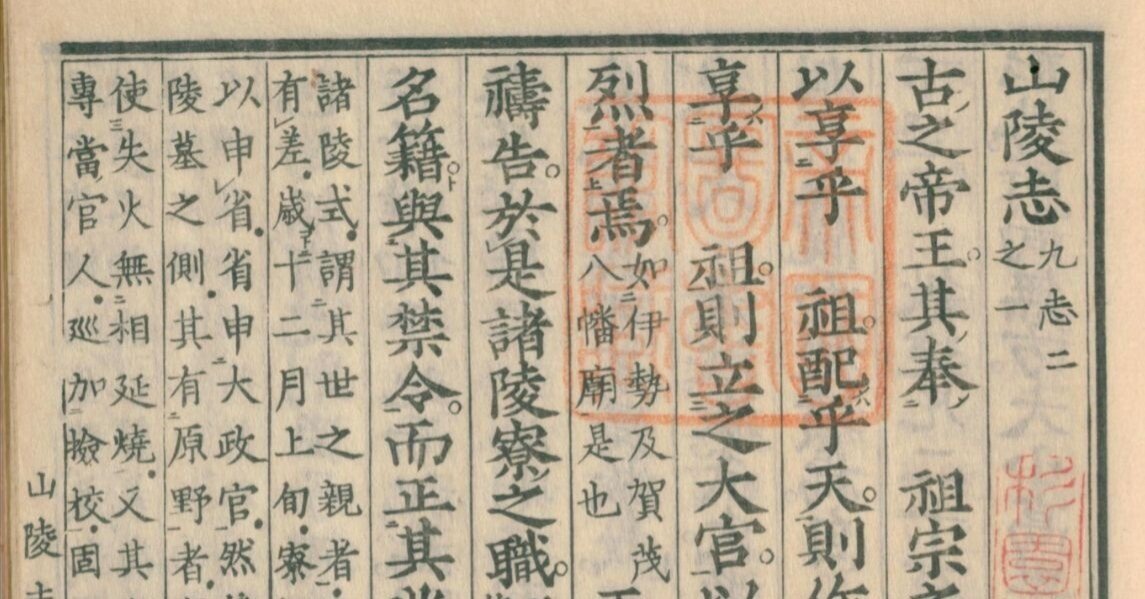 山陵志
九志二
之一
古之帝王。其奉 祖宗
以享乎 祖。配乎天。則
享乎 祖。則立之大官。以
烈者焉。
如伊勢及賀茂
八幡廟是也
禱告。於是諸陵寮之職。
名籍。與其禁令。而正其
諸陵式。謂其世之親者。
有差。歲十二月上旬。寮
以申省。省申大政官。然
陵墓之側。其有原野者。
使失火無相延燒。又其
專當官人。巡加撿校。固
山陵